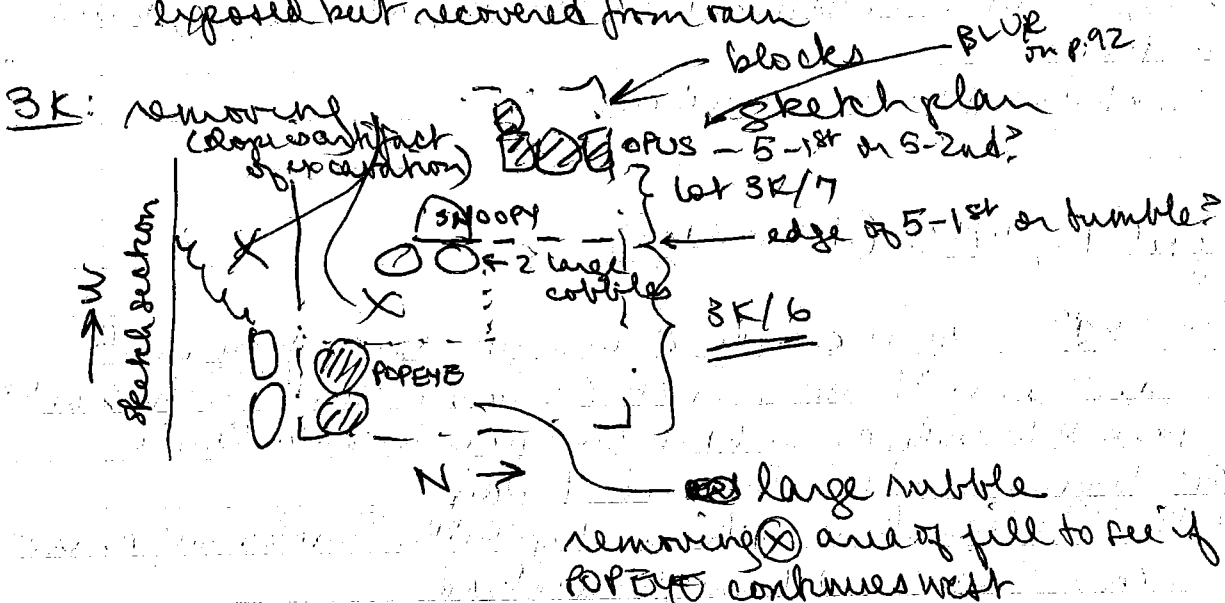 exposed but recovered from rain
blocks
BLUE
on p. 92
3K: removing
sketch plan
(slope artifact
of excavation)
OPUS - 5-1st or 5-2nd?
lot 3K/7
SNOOPY
edge of 5-1st or tumble?
2 large
cobbles
3K/6
→ W
sketch section
POPEYE
N →
large rubble
removing X area of fill to see if
POPEYE continues west